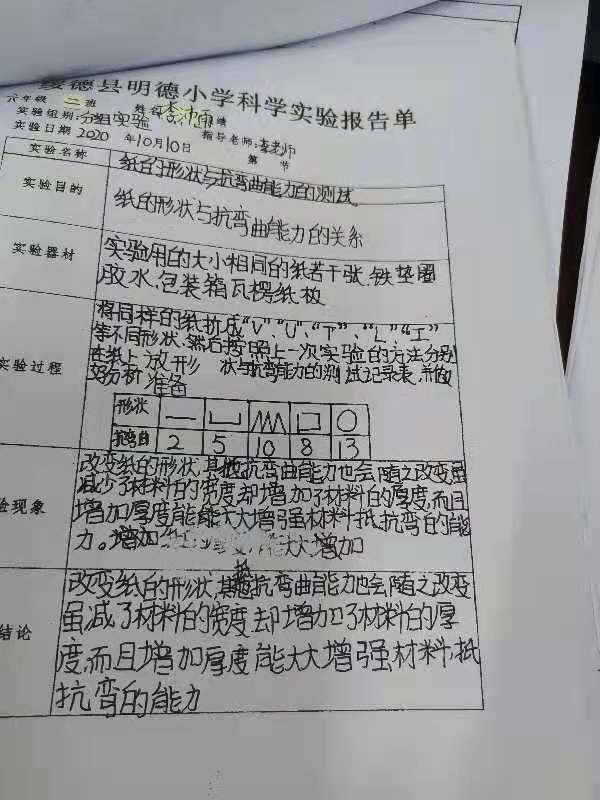 绥德县明德小学科学实验报告单
六年级 二班 姓名 绩
实验组别:分组实验 指导老师:李老师
实验日期 2020 年10月10日 第 节
实验名称 纸的形状与抗弯曲能力的测试
实验目的 纸的形状与抗弯曲能力的关系
实验器材 实验用的大小相同的纸若干张.铁垫圈
胶水.包装箱瓦楞纸板
将同样的纸折成“V”“U”、“T”、“L”“工”
等不同形状.然后按照上一次实验的方法分别
实验过程 在纸上放形 状与抗弯曲能力的测试记录表,并做
好分析准备
形状
2 5 10 8 13
改变纸的形状,其抵抗弯曲能力也会随之改变虽
减少了材料的宽度却增加了材料的厚度,而且
验现象 增加厚度能能大大增强材料抵抗弯的能
力。增加 大大增加
改变纸的形状,其抵抗弯曲能力也会随之改变
虽减了材料的宽度却增加了材料的厚
结论 度,而且增加厚度能大大增强材料抵
抗弯的能力